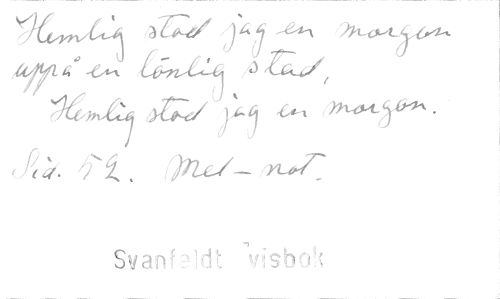 Hemlig stod jag en morgon
uppå en lönlig stad,
Hemlig stod jag en morgon.
Sid. 52. Mel-not.
Svanfeldt visbok